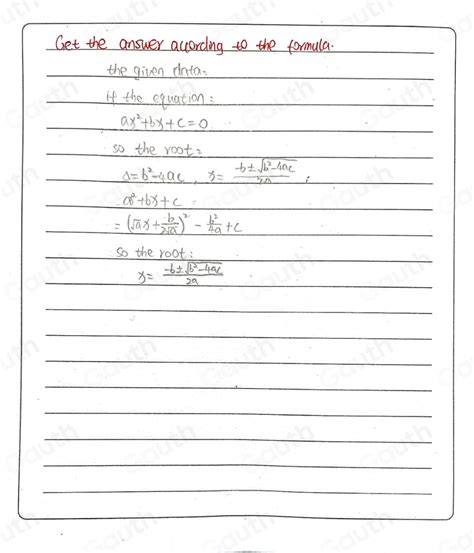 Get the answer according to the formula.
the given data:
if the equation:
ax²+bx+c=0
so the root:
Δ=b²-4ac, x=(-b±√(b²-4ac))/2a;
ax²+bx+c
=(√a x+b/(2√a))²-b²/4a+c
so the root:
x=(-b±√(b²-4ac))/2a
Gauth